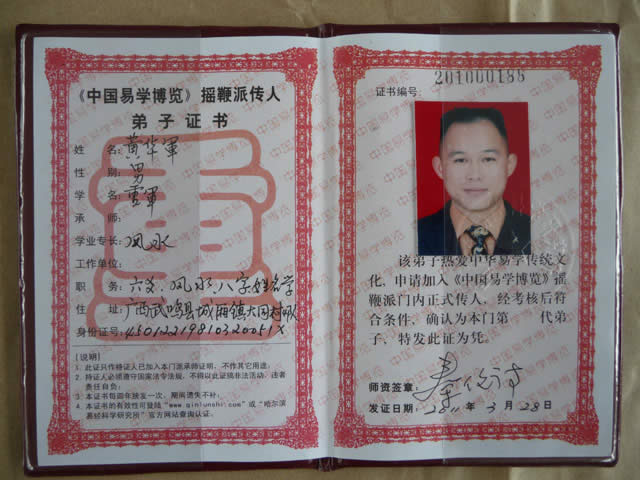 《中国易学博览》摇鞭派传人
弟子证书
姓 名: 黄华軍
性 别: 男
学 名: 雷軍
承 师:
学业专长: 风水
工作单位:
职 务: 六爻、风水、八字姓名学
住 址: 广西武鸣县城厢镇大同村
身份证号:
〔说明〕
1、此证只作持证人已加入本门派承师证明,不作其它用途;
2、持证人必须遵守国家法令法规,不得以此证搞非法活动,违者
责任自负;
3、本证书每四年换发一次,期间遗失不补;
4、本证书的有效性可登陆"www.qinlunshi.com"或"哈尔滨
易经科学研究所"官方网站查询认证。
201000188
证书编号:
该弟子热爱中华易学传统文
化,申请加入《中国易学博览》摇
鞭派门内正式传人,经考核后符
合条件,确认为本门第 代弟
子,特发此证为凭。
师资签章: 秦伦诗
发证日期: 2011 年 3 月 28 日